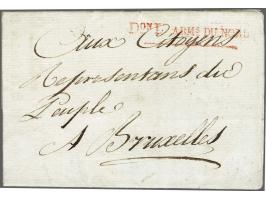 Don.^x ARM^s DU NORD
Aux Citoyens
Representans du
Peuple
A Bruxelles